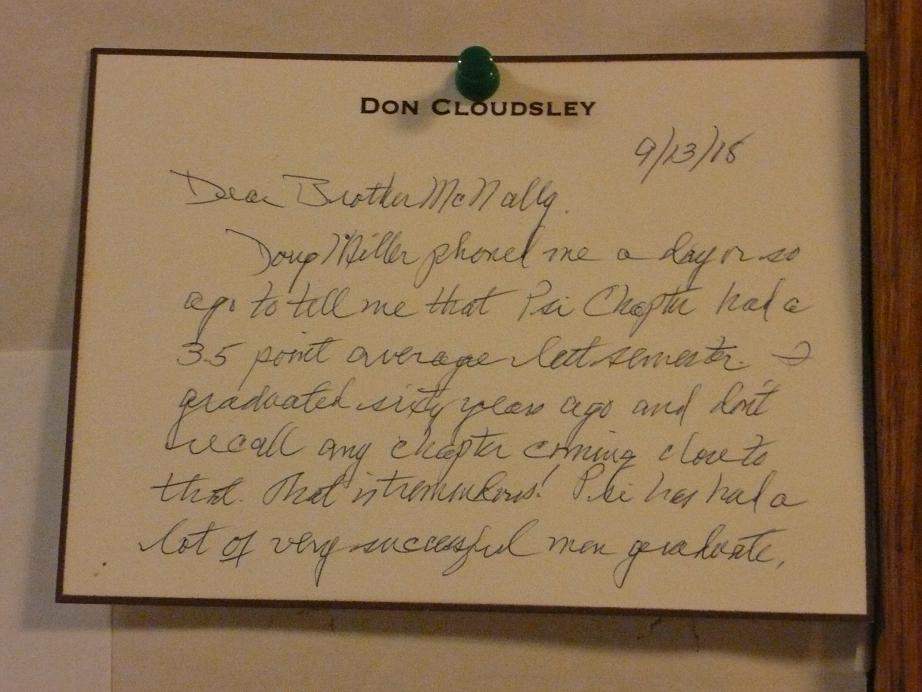 DON CLOUDSLEY
9/13/18
Dear Brother McNally.
Doug Miller phoned me a day or so
ago to tell me that Psi Chapter had a
3.5 point average last semester. I
graduated sixty years ago and don't
recall any chapter coming close to
that. That is tremendous! Psi has had a
lot of very successful men graduate,